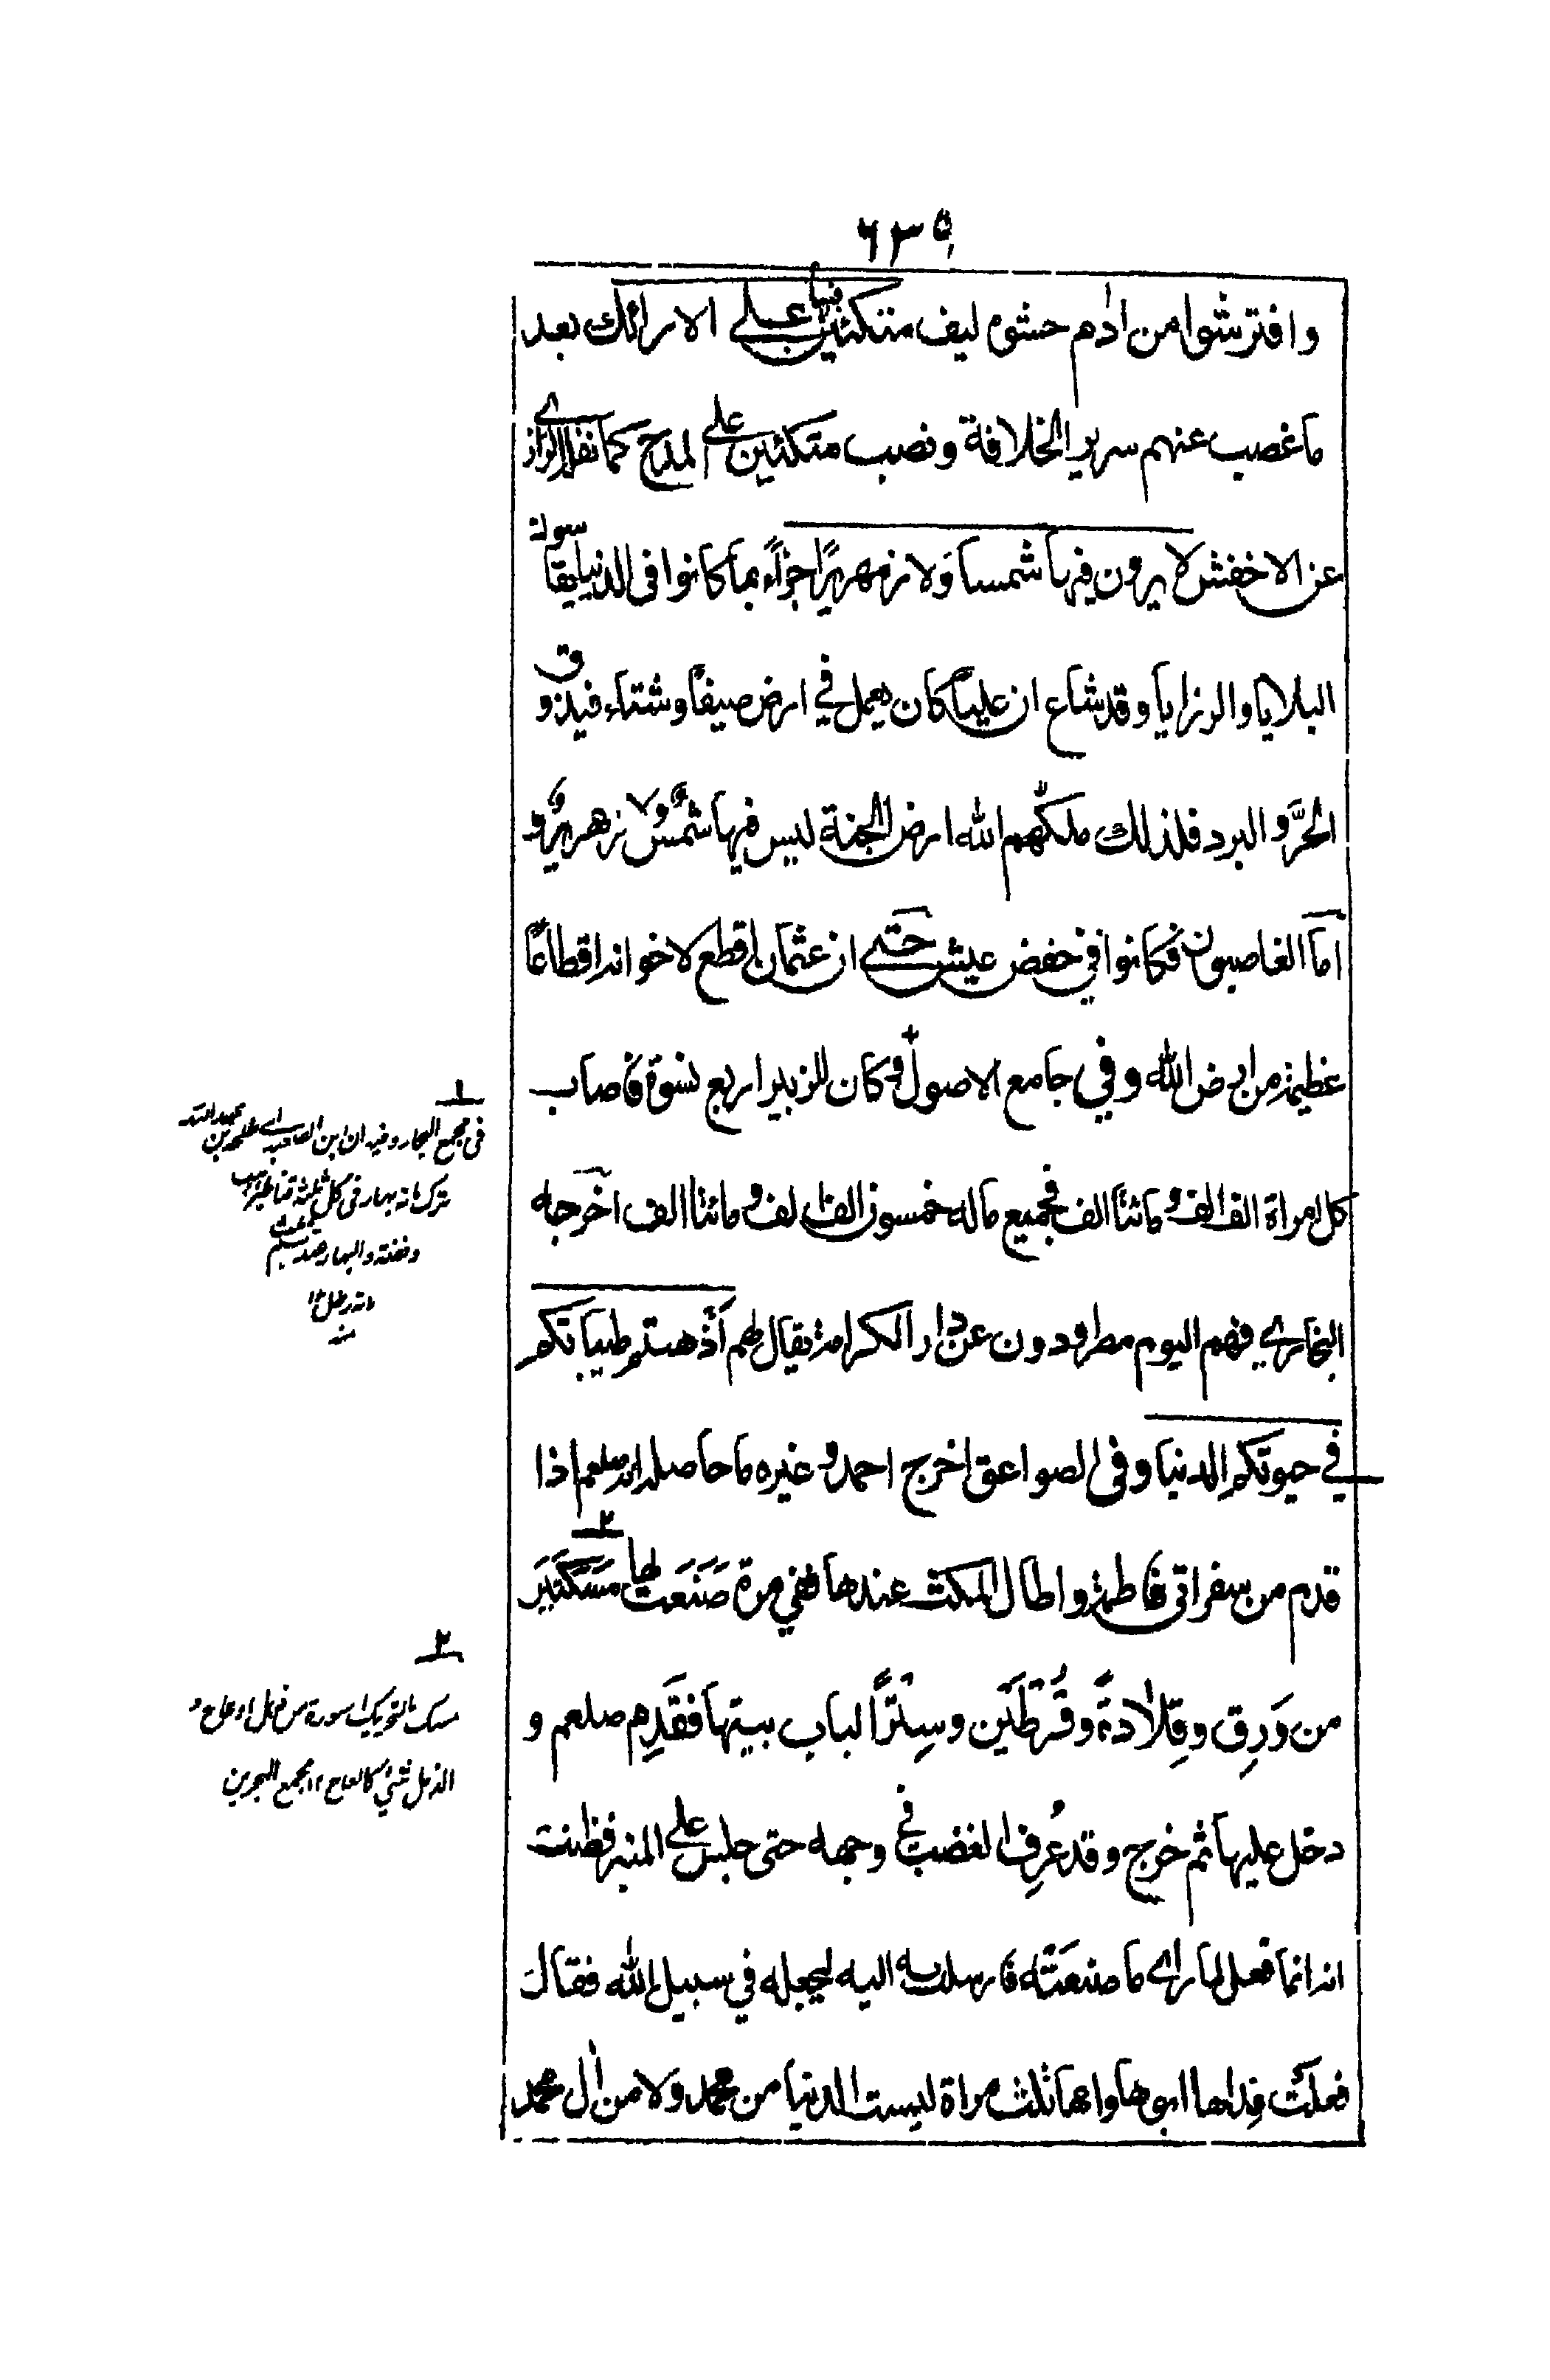 ٦٣٥
وافترشوا من ادم حشوه ليف متكئين فيها على الارائك بعد
ما غصب عنهم سرير الخلافة ونصب متكئين على المدح كما نقل الرازي
عن الاخفش لا يرون فيها شمسا ولا زمهريرًا جزاءً بما كانوا في الدنيا يقاسونه
البلايا والرزايا وقد شاع ان عليًا كان يعمل في ارض صيفًا وشتاء فيذوق
الحرَّ والبرد فلذلك ملّكهم الله ارض الجنة ليس فيها شمسٌ ولا زمهريرٌ و
اما الغاصبون فكانوا في خفض عيش حتى ان عثمان اقطع لاخوانه اقطاعًا
عظيمة من ارض الله وفي جامع الاصول وكان للزبير اربع نسوة فاصاب
كل امراة الف الف ومائتا الف فجميع ماله خمسون الف الف ومائتا الف اخرجه
البخاري فهم اليوم مطرودون عن دار الكرامة يقال لهم أذهبتم طيباتكم
في حيوتكم الدنيا وفي الصواعق اخرج احمد وغيره ما حاصله انه صلعم اذا
قدم من سفر اتى فاطمة واطال المكث عندها ففي مرة صَنَعَت لها مَسَكَتَين ٢
من وَرِق وقِلادةً وقُرْطَين وسِتْرًا لباب بيتها فقَدِم صلعم و
دخل عليها ثم خرج وقد عُرِف الغضب في وجهه حتى جلس على المنبر فظنت
انه انما فعل لما راى ما صنعَتْه فارسلت به اليه ليجعله في سبيل الله فقال
فعلَتْ فداها ابوها وامها ثلث مراة ليست الدنيا من محمد ولا من اٰل محمد
١
في مجمع البحار وفيه ان ابن الصعبة اي طلحة بن عبيد الله
ترك مائة بهار في كل ثلثة قناطير ذهب
وفضة والبهار عندهم
مائة رطل ١٢
منه
٢
مسك بالتحريك اسورة من ذبل او عاج و
الذبل شئ كالعاج ١٢ مجمع البحرين